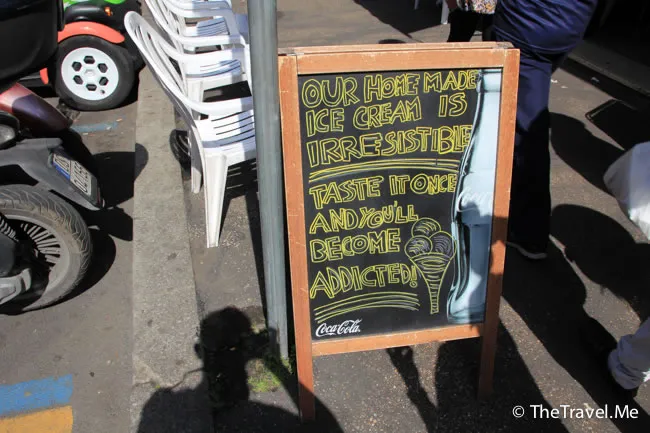 OUR HOME MADE
ICE CREAM IS
IRRESISTIBLE
TASTE IT ONCE
AND YOU'LL
BECOME
ADDICTED!
Coca-Cola.
© TheTravel.Me